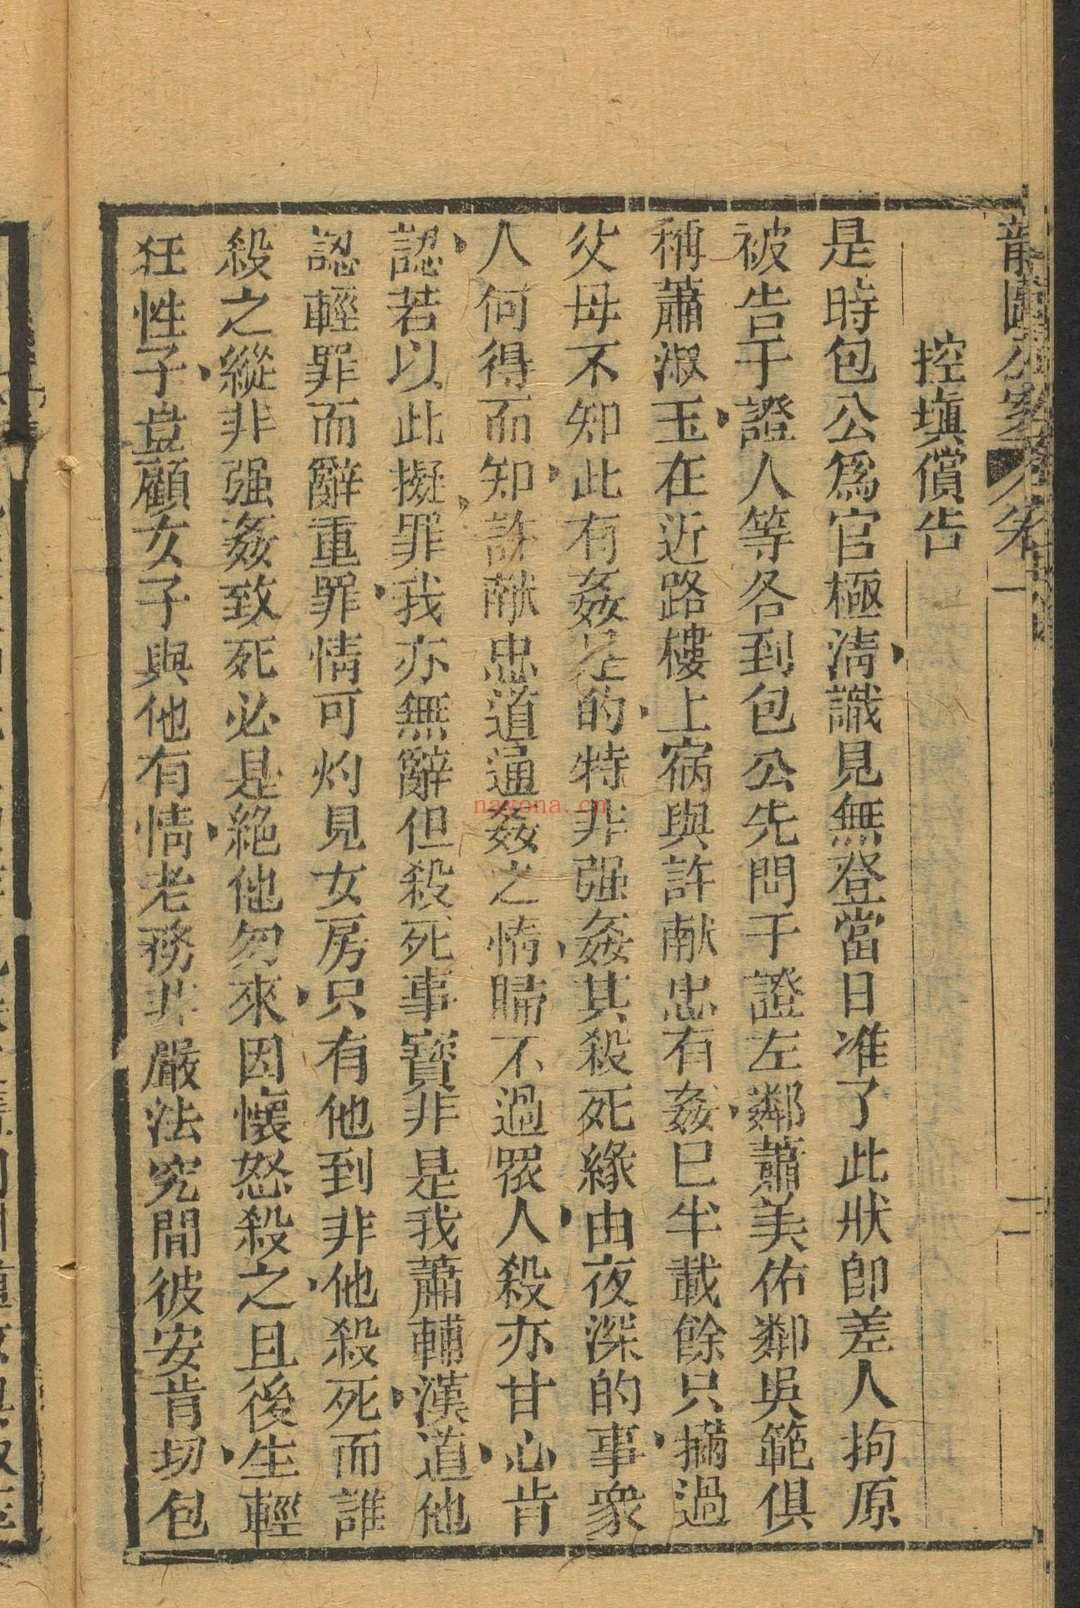 龍圖公案 卷一
控填償告
是時包公爲官極清識見無登當日准了此狀卽差人拘原
被告干證人等各到包公先問干證左鄰蕭美佑鄰吳範俱
稱蕭淑玉在近路樓上宿與許献忠有姦巳半載餘只瞞過
父母不知此有姦是的特非强姦其殺死緣由夜深的事衆
人何得而知許献忠道通姦之情瞞不過眾人殺亦甘心肯
認若以此擬罪我亦無辭但殺死事實非是我蕭輔漢道他
認輕罪而辭重罪情可灼見女房只有他到非他殺死而誰
殺之縱非强姦致死必是絶他勿來因懷怒殺之且後生輕
狂性子豈顧女子與他有情老務非嚴法究間彼安肯切包
nayona.cn